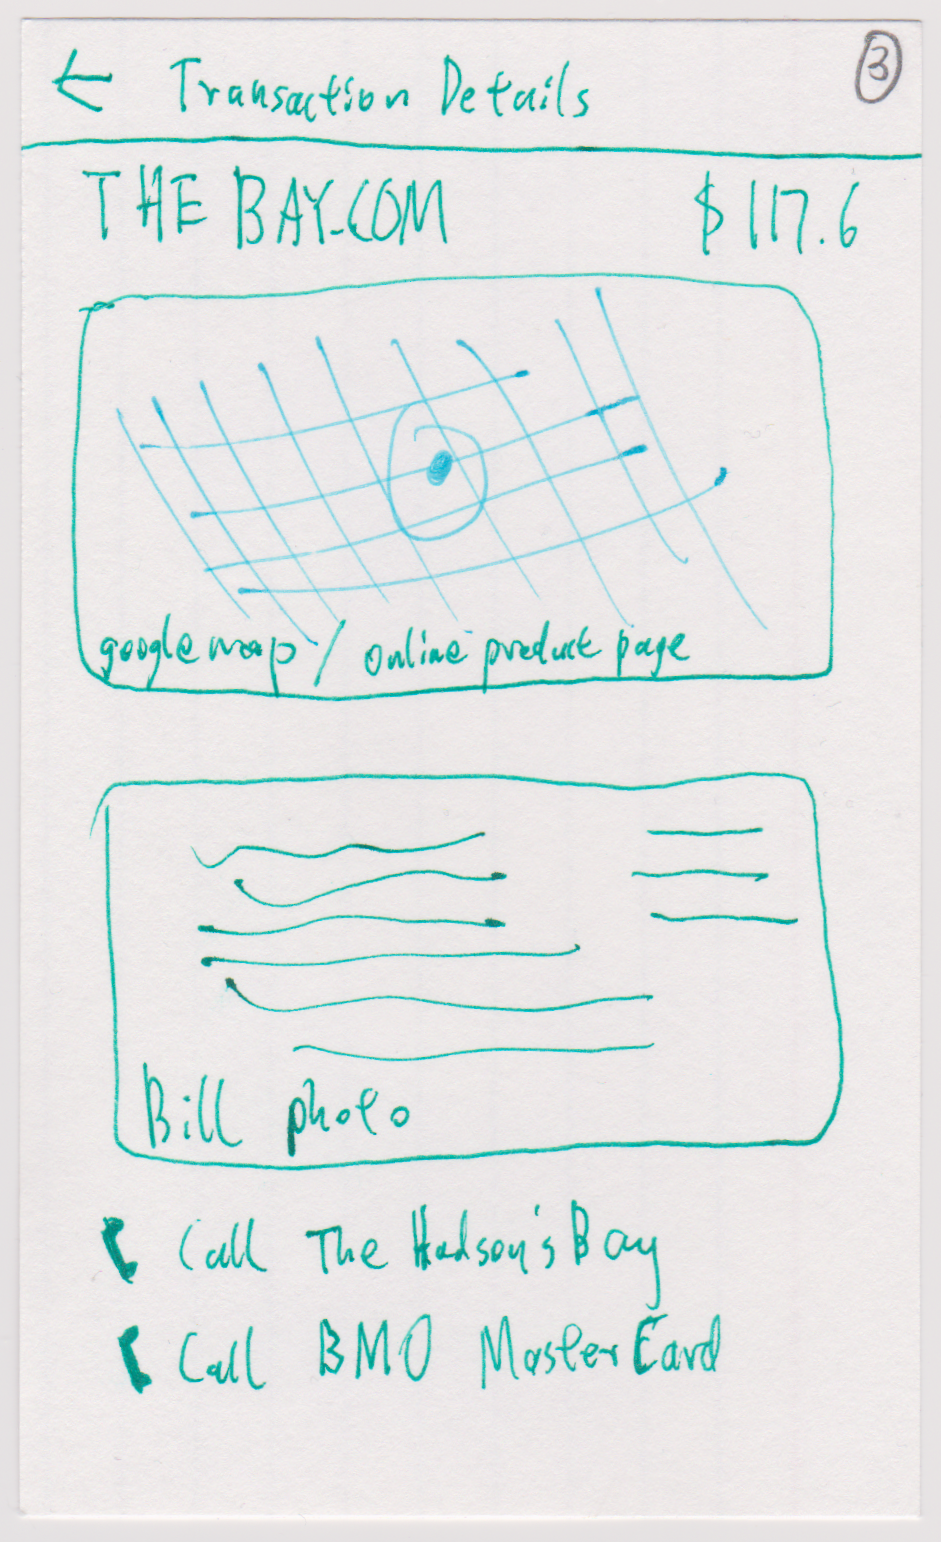 ← Transaction Details
3
THE BAY.COM
$117.6
google map / online product page
Bill photo
Call The Hudson's Bay
Call BMO MasterCard